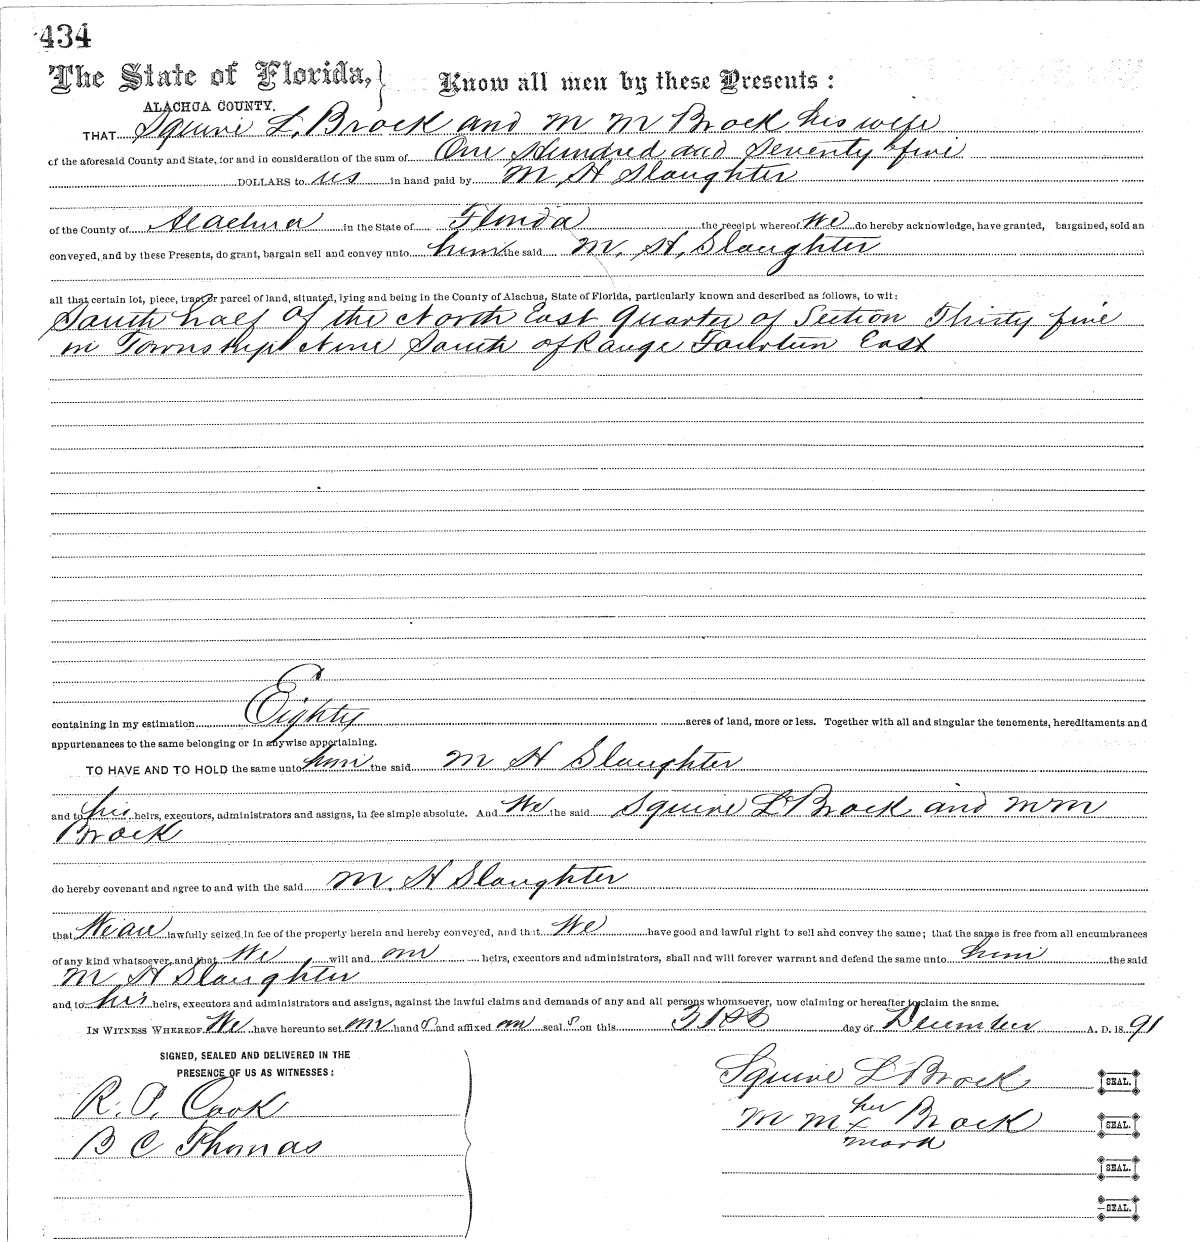 434
The State of Florida, } Know all men by these Presents:
ALACHUA COUNTY.
THAT Squire L. Brock and M M Brock his wife
of the aforesaid County and State, for and in consideration of the sum of One Hundred and Seventy five
DOLLARS to us in hand paid by M. H Slaughter
of the County of Alachua in the State of Florida the receipt whereof We do hereby acknowledge, have granted, bargained, sold an
conveyed, and by these Presents, do grant, bargain sell and convey unto him the said M. H. Slaughter
all that certain lot, piece, tract or parcel of land, situated, lying and being in the County of Alachua, State of Florida, particularly known and described as follows, to wit:
South half of the North East Quarter of Section Thirty five
in Township Nine South of Range Fourteen East
containing in my estimation Eighty acres of land, more or less. Together with all and singular the tenements, hereditaments and
appurtenances to the same belonging or in anywise appertaining.
TO HAVE AND TO HOLD the same unto him the said M H Slaughter
and to his heirs, executors, administrators and assigns, in fee simple absolute. And We the said Squire L Brock and M M
Brock
do hereby covenant and agree to and with the said M. H Slaughter
that We are lawfully seized in fee of the property herein and hereby conveyed, and that We have good and lawful right to sell and convey the same; that the same is free from all encumbrances
of any kind whatsoever, and that We will and our heirs, executors and administrators, shall and will forever warrant and defend the same unto him the said
M H Slaughter
and to his heirs, executors and administrators and assigns, against the lawful claims and demands of any and all persons whomsoever, now claiming or hereafter to claim the same.
IN WITNESS WHEREOF, We have hereunto set our hand s and affixed our seal s on this 31st day of December A. D. 18 91
SIGNED, SEALED AND DELIVERED IN THE
PRESENCE OF US AS WITNESSES:
R. P. Cook
B C Thomas
Squire L Brock SEAL.
her
M M x Brock SEAL.
mark
SEAL.
SEAL.